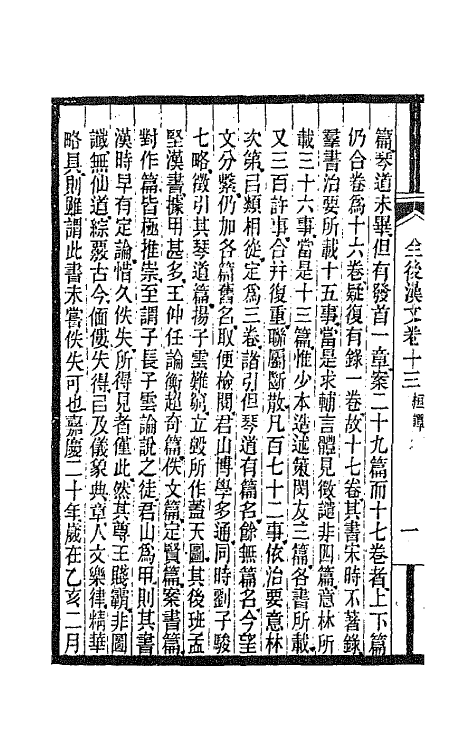 全後漢文卷十三 桓譚
一
篇琴道未畢但有發首一章案二十九篇而十七卷者上下篇
仍合卷爲十六卷疑復有錄一卷故十七卷其書宋時不著錄
羣書治要所載十五事當是求輔言體見徵譴非四篇意林所
載三十六事當是十三篇惟少本造述策閔友三篇各書所載
又三百許事合并復重聯屬斷散凡百七十二事依治要意林
次第㠯類相從定爲三卷諸引但琴道有篇名餘無篇名今望
文分繫仍加各篇舊名取便檢閱君山博學多通同時劉子駿
七略徵引其琴道篇揚子雲難窮立毀所作蓋天圖其後班孟
堅漢書據用甚多王仲任論衡超奇篇佚文篇定賢篇案書篇
對作篇皆極推崇至謂子長子雲論說之徒君山爲甲則其書
漢時早有定論惜久佚失所得見者僅此然其尊王賤霸非圖
讖無仙道綜覈古今偭僂失得㠯及儀象典章人文樂律精華
略具則雖謂此書未嘗佚失可也嘉慶二十年歲在乙亥二月